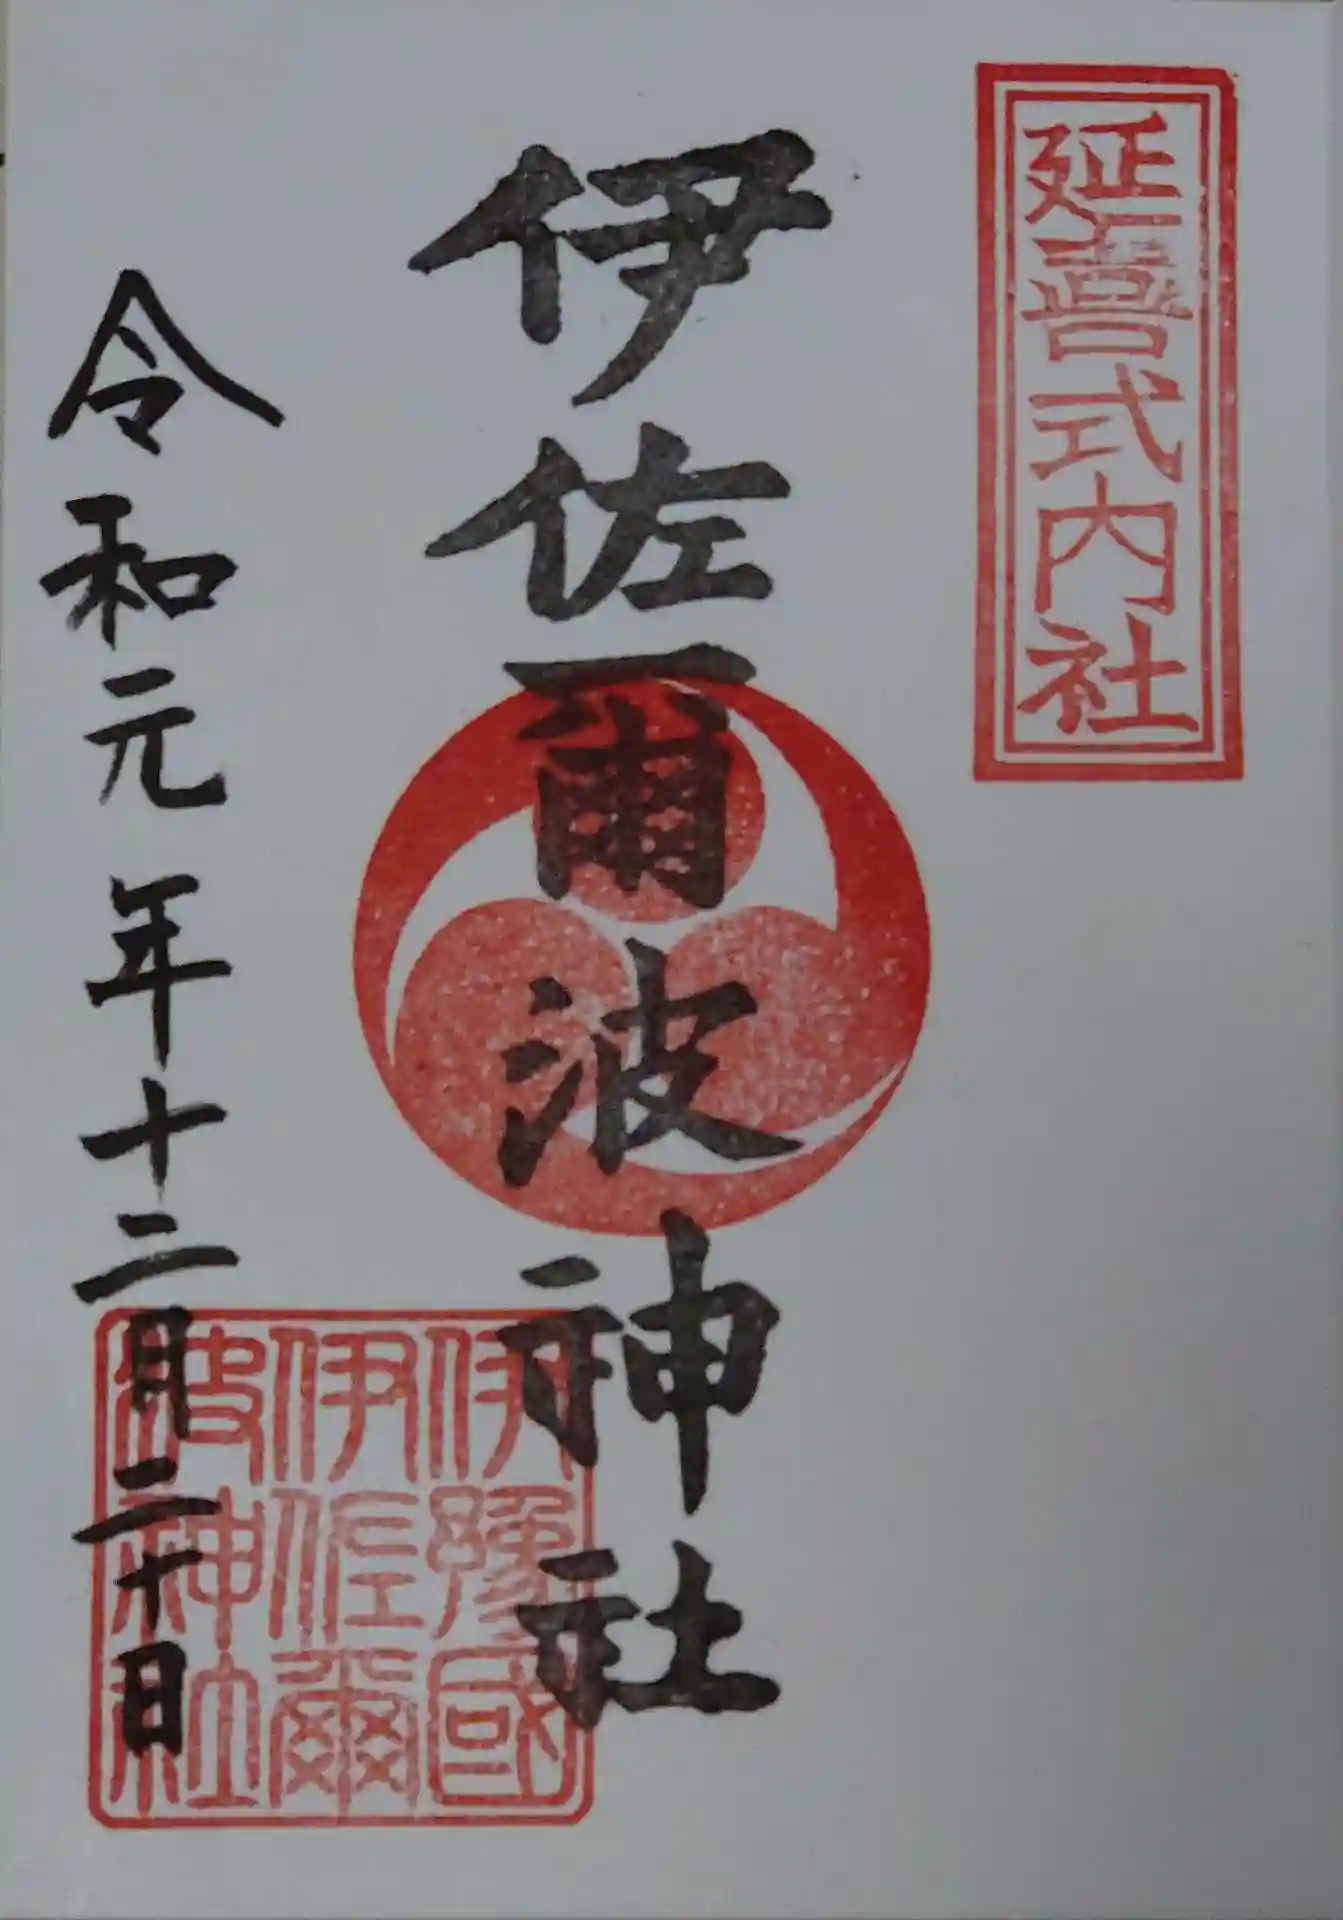 延喜式内社
伊佐爾波神社
令和元年十二月二十日
伊豫國
伊佐爾
波神社